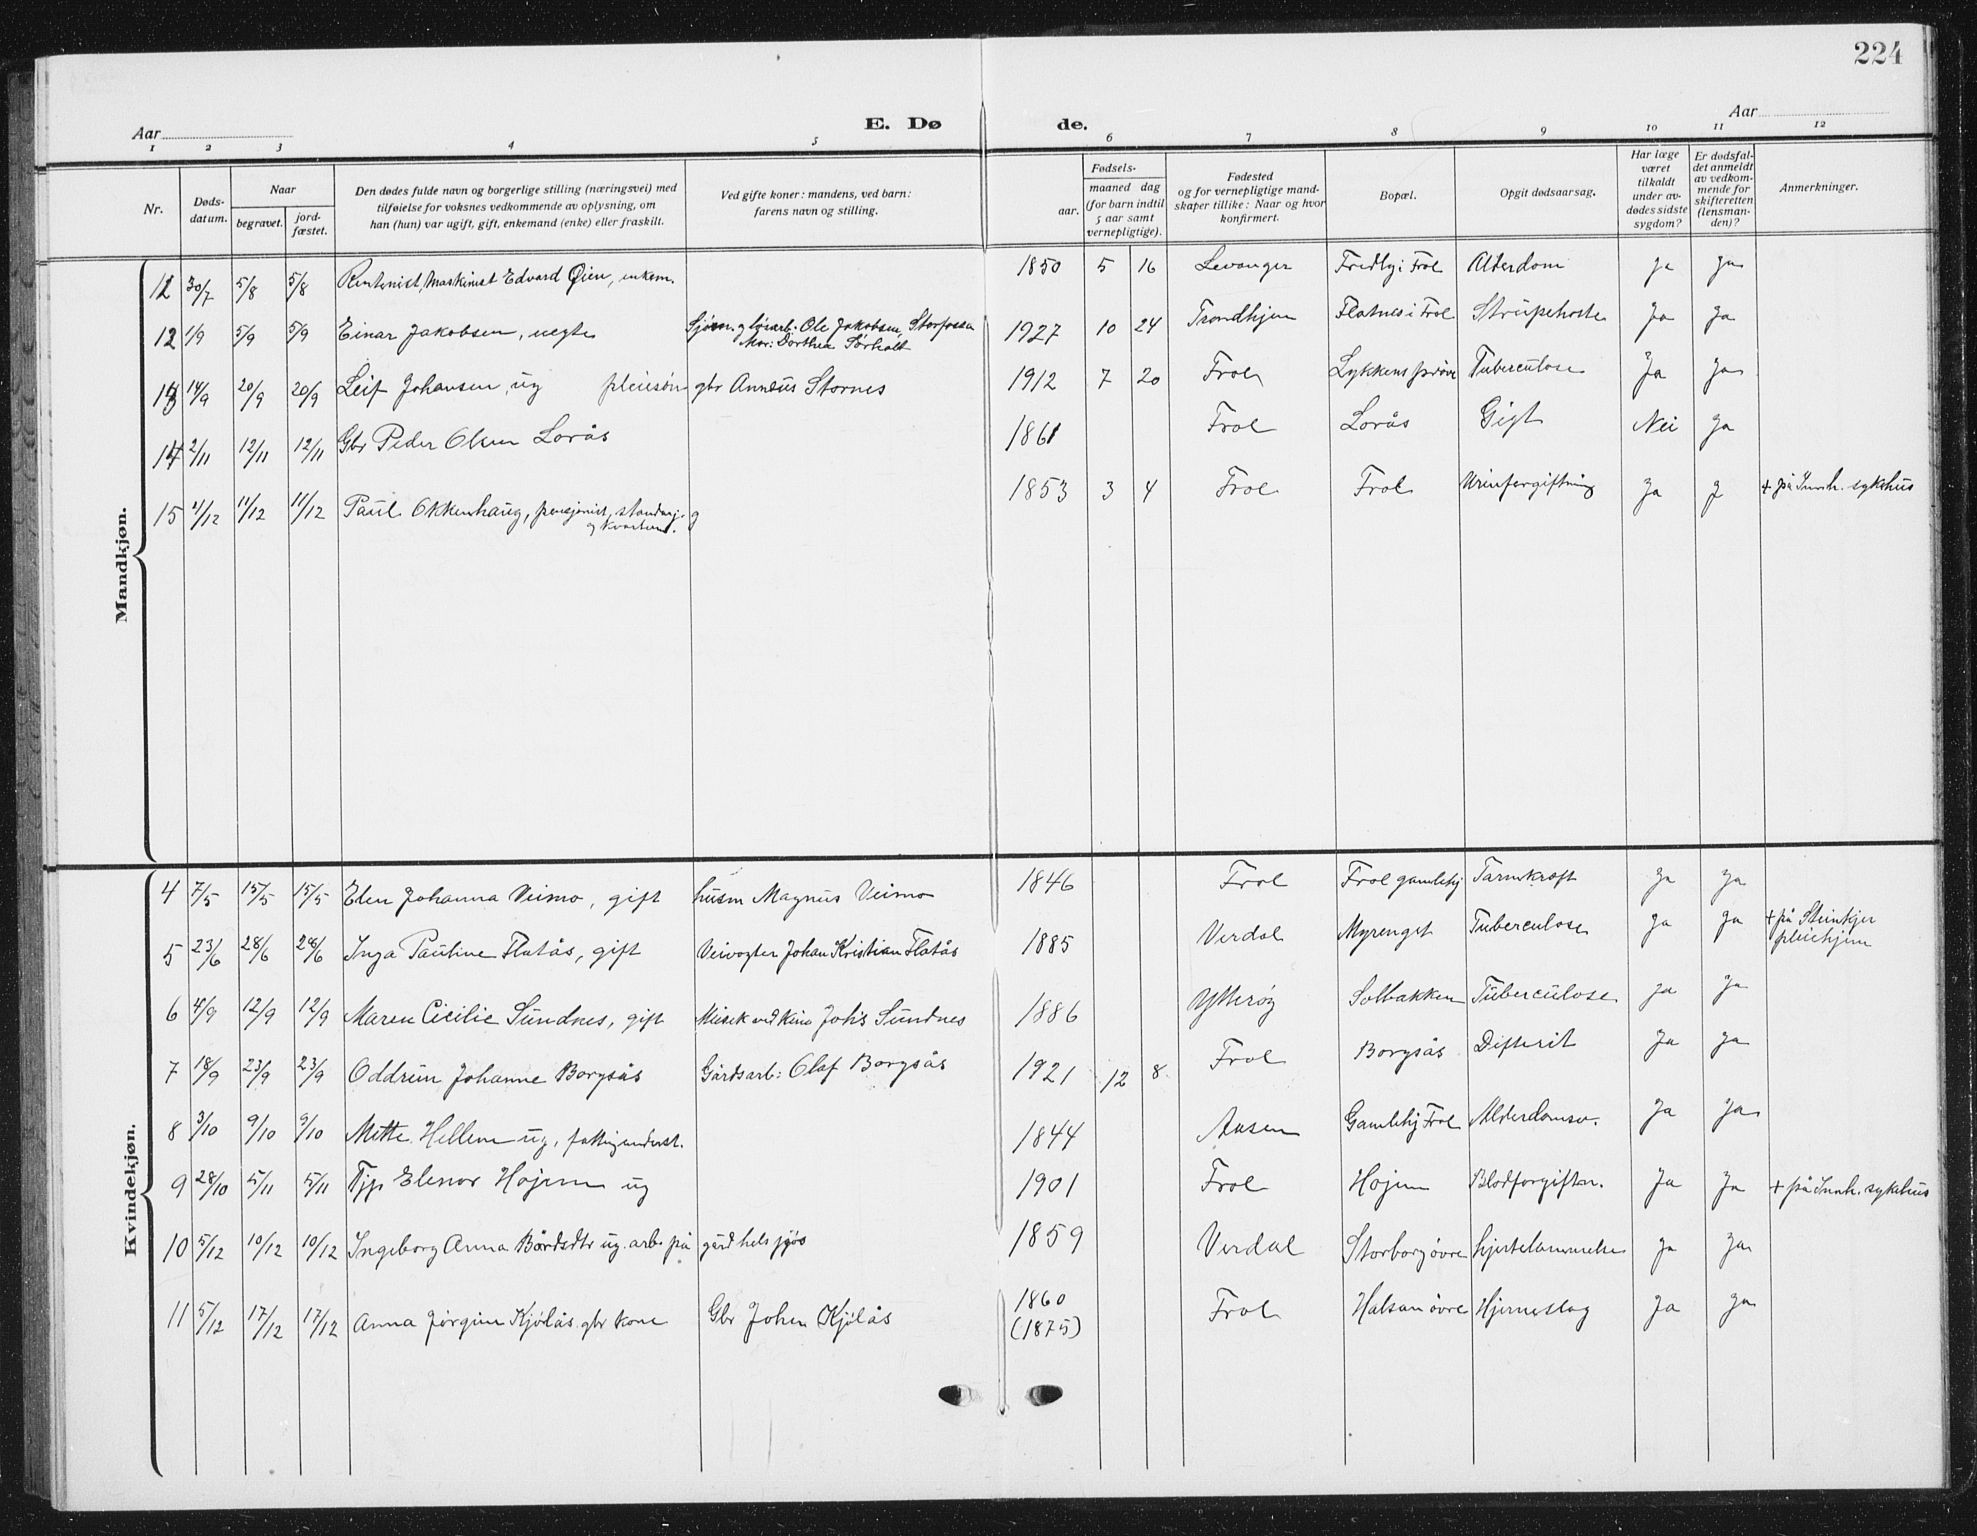 224
Aar
E. Dø de.
Aar
1 2 3 4 5 6 7 8 9 10 11 12
Nr.
Døds-
datum.
Naar
begravet.
jord-
fæstet.
Den dødes fulde navn og borgerlige stilling (næringsvei) med
tilføielse for voksnes vedkommende av oplysning, om
han (hun) var ugift, gift, enkemand (enke) eller fraskilt.
Ved gifte koner: mandens, ved barn:
farens navn og stilling.
Fødsels-
aar.
maaned dag
(for barn indtil
5 aar samt
vernepligtige).
Fødested
og for vernepligtige mand-
skaper tillike: Naar og hvor
konfirmert.
Bopæl.
Opgit dødsaarsag.
Har læge
været
tilkaldt
under av-
dødes sidste
sygdom?
Er dødsfal-
det anmeldt
av vedkom-
mende for
skifteretten
(lensman-
den)?
Anmerkninger.
Mandkjøn.
30/7 5/8 5/8 Rentenist, Maskinist Edvard Øien, enkem. 1850 5 16 Levanger Fredly i Frol Alderdom ja ja
12 1/9 5/9 5/9 Einar Jakobsen, uegte Sjøm. g løsarb. Ole Jakobsen, Storfossen
Mor: Dorthea Sørholt 1927 10 24 Trondhjem Flatnes i Frol Strupehoste Ja Ja
13 14/9 20/9 20/9 Leif Johansen, ug pleiesøn gbr Anneus Stornes 1912 7 20 Frol Lykkens prøve Tuberculose Ja Ja
14 2/11 12/11 12/11 Gbr Peder Olsen Lorås 1861 Frol Lorås Gigt Nei Ja
15 4/12 11/12 11/12 Paul Okkenhaug, pensjonist, standarj.
og kvarterm. g 1853 3 4 Frol Frol Urinforgiftning Ja J + på Innh. sykehus
Kvindekjøn.
4 7/5 15/5 15/5 Elen Johanna Veimo, gift husm Magnus Veimo 1846 Frol Frol gamlehj Tarmkræft Ja Ja
5 23/6 28/6 28/6 Inga Pauline Flatås, gift Veivogter Johan Kristian Flatås 1885 Verdal Myrenget Tuberculose Ja Ja + på Steinkjer
pleiehjem
6 4/9 12/9 12/9 Maren Cicilie Sundnes, gift Musik ved kino Johs Sundnes 1886 Ytterøy Solbakken Tuberculose Ja Ja
7 18/9 23/9 23/9 Oddrun Johanne Borgsås Gårdsarb: Olaf Borgsås 1921 12 8 Frol Borgsås Difterit Ja Ja
8 3/10 9/10 9/10 Mette Hellem ug, fattigunderst. 1844 Aasen Gamlehj Frol Alderdomsv. Ja Ja
9 28/10 5/11 5/11 Tjp Elenor Hojem ug 1901 Frol Hojem Blodforgiftn. Ja Ja + på Innh. sykehus
10 5/12 10/12 10/12 Ingeborg Anna Bårdsdtr ug. arb. på gård 1859 Verdal Storborg øvre hjertelammelse Ja Ja
11 5/12 17/12 17/12 Anna Jørgine Kjølås gbr kone Gbr Johen Kjølås 1860
(1875) Frol Halsan øvre Hjerneslag Ja Ja